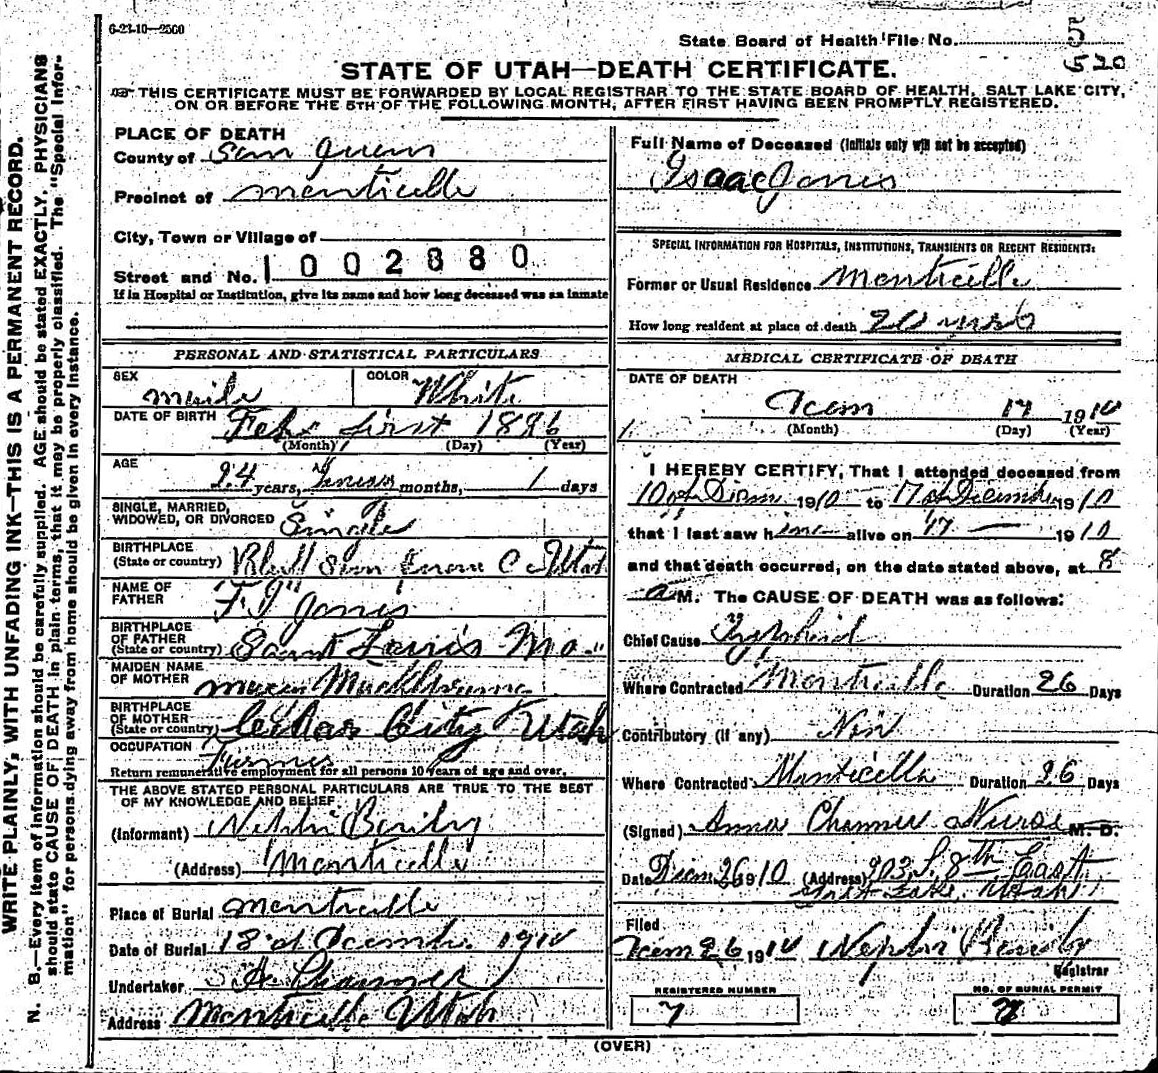 6-23-10—2500
State Board of Health File No.
5
520
STATE OF UTAH—DEATH CERTIFICATE.
THIS CERTIFICATE MUST BE FORWARDED BY LOCAL REGISTRAR TO THE STATE BOARD OF HEALTH, SALT LAKE CITY,
ON OR BEFORE THE 5TH OF THE FOLLOWING MONTH, AFTER FIRST HAVING BEEN PROMPTLY REGISTERED.
WRITE PLAINLY, WITH UNFADING INK—THIS IS A PERMANENT RECORD.
N. B.—Every item of information should be carefully supplied. AGE should be stated EXACTLY. PHYSICIANS
should state CAUSE OF DEATH in plain terms, that it may be properly classified. The "Special Infor-
mation" for persons dying away from home should be given in every instance.
PLACE OF DEATH
County of San Juan
Precinct of Monticello
City, Town or Village of
Street and No. 1002880
If in Hospital or Institution, give its name and how long deceased was an inmate
PERSONAL AND STATISTICAL PARTICULARS
SEX male COLOR White
DATE OF BIRTH first 1886
(Month) (Day) (Year)
AGE 24 years, months, 1 days
SINGLE, MARRIED,
WIDOWED, OR DIVORCED Single
BIRTHPLACE
(State or country) Bluff San Utah
NAME OF
FATHER F. I. Jones
BIRTHPLACE
OF FATHER
(State or country) Saint Louis Mo.
MAIDEN NAME
OF MOTHER
BIRTHPLACE
OF MOTHER
(State or country) Cedar City Utah
OCCUPATION
Return remunerative employment for all persons 10 years of age and over,
THE ABOVE STATED PERSONAL PARTICULARS ARE TRUE TO THE BEST
OF MY KNOWLEDGE AND BELIEF
(Informant) Nephi
(Address) Monticello
Place of Burial Monticello
Date of Burial 18 1910
Undertaker
Address Monticello Utah
Full Name of Deceased (Initials only will not be accepted)
Isaac Jones
SPECIAL INFORMATION FOR HOSPITALS, INSTITUTIONS, TRANSIENTS OR RECENT RESIDENTS:
Former or Usual Residence Monticello
How long resident at place of death
MEDICAL CERTIFICATE OF DEATH
DATE OF DEATH
17 1910
(Month) (Day) (Year)
I HEREBY CERTIFY, That I attended deceased from
10 1910 to 17 1910
that I last saw him alive on 17 — 1910
and that death occurred, on the date stated above, at 8
a M. The CAUSE OF DEATH was as follows:
Chief Cause Typhoid
Where Contracted Monticello Duration 26 Days
Contributory (if any)
Where Contracted Monticello Duration 26 Days
(Signed) Anna Nurse M. D.
Date 26 1910 (Address) 903 S. 8th East
Salt Lake, Utah
Filed
26 1910 Nephi
Registrar
REGISTERED NUMBER
7
NO. OF BURIAL PERMIT
(OVER)